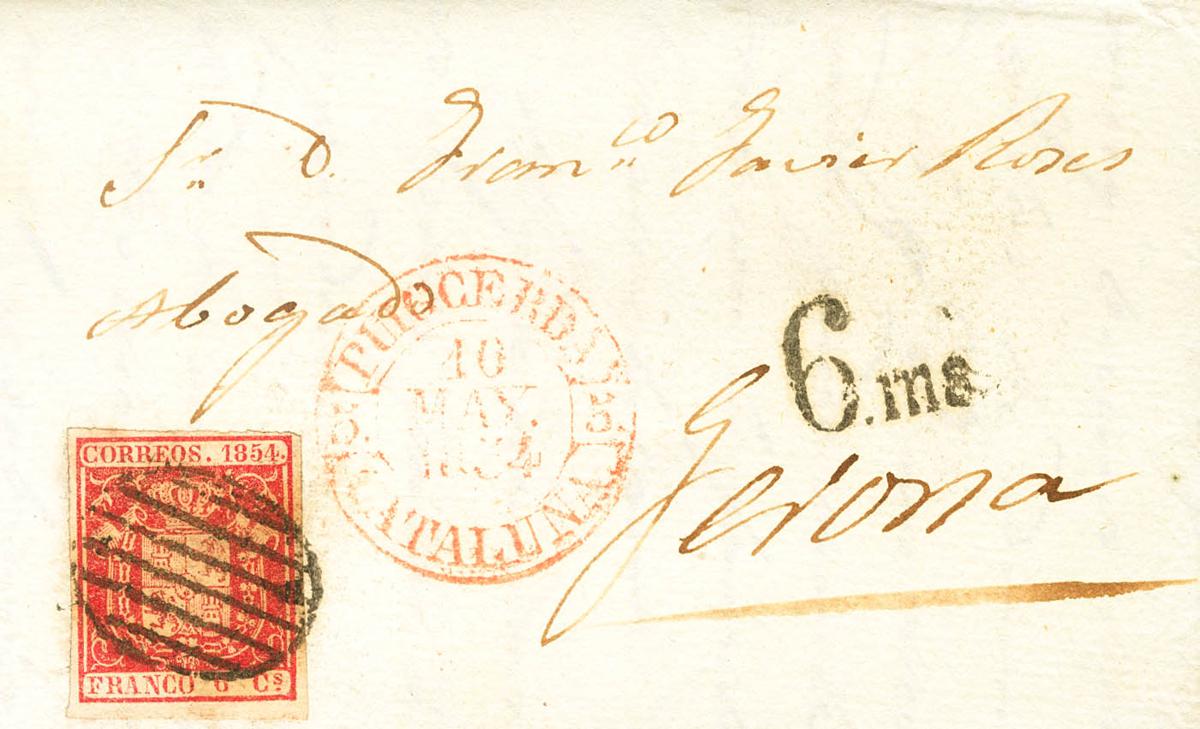 Sr D. Franco Javier Roses
Abogado
PUIGCERDA
10
MAY.
1854
CATALUÑA
6.ms
Gerona
CORREOS. 1854.
FRANCO 6 Cs